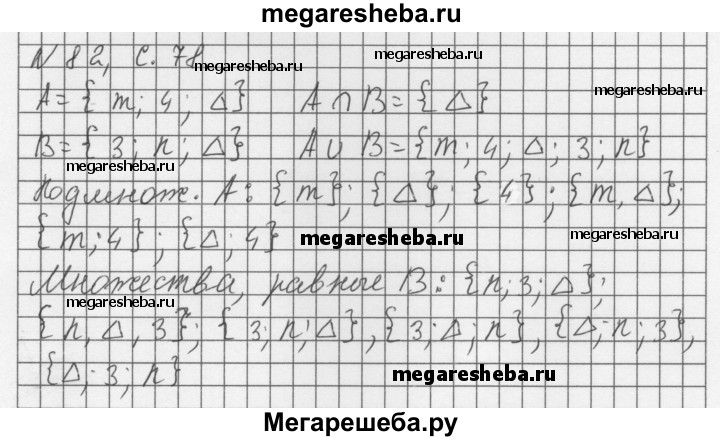 megaresheba.ru
N 8 а, с. 78
megaresheba.ru
megaresheba.ru
A = { m; 4; Δ} A ∩ B = { Δ}
megaresheba.ru
B = { 3; n; Δ} A ∪ B = {m; 4; Δ; 3; n}
megaresheba.ru
Подмнож. A: {m}; {Δ}; {4}; {m, Δ};
{m; 4}; {Δ; 4}
megaresheba.ru
megaresheba.ru
Множества, равные B: {n; 3; Δ};
megaresheba.ru
{n, Δ, 3}; {3; n; Δ}, {3; Δ; n}, {Δ; n; 3},
{Δ; 3; n}
megaresheba.ru
Мегарешеба.ру